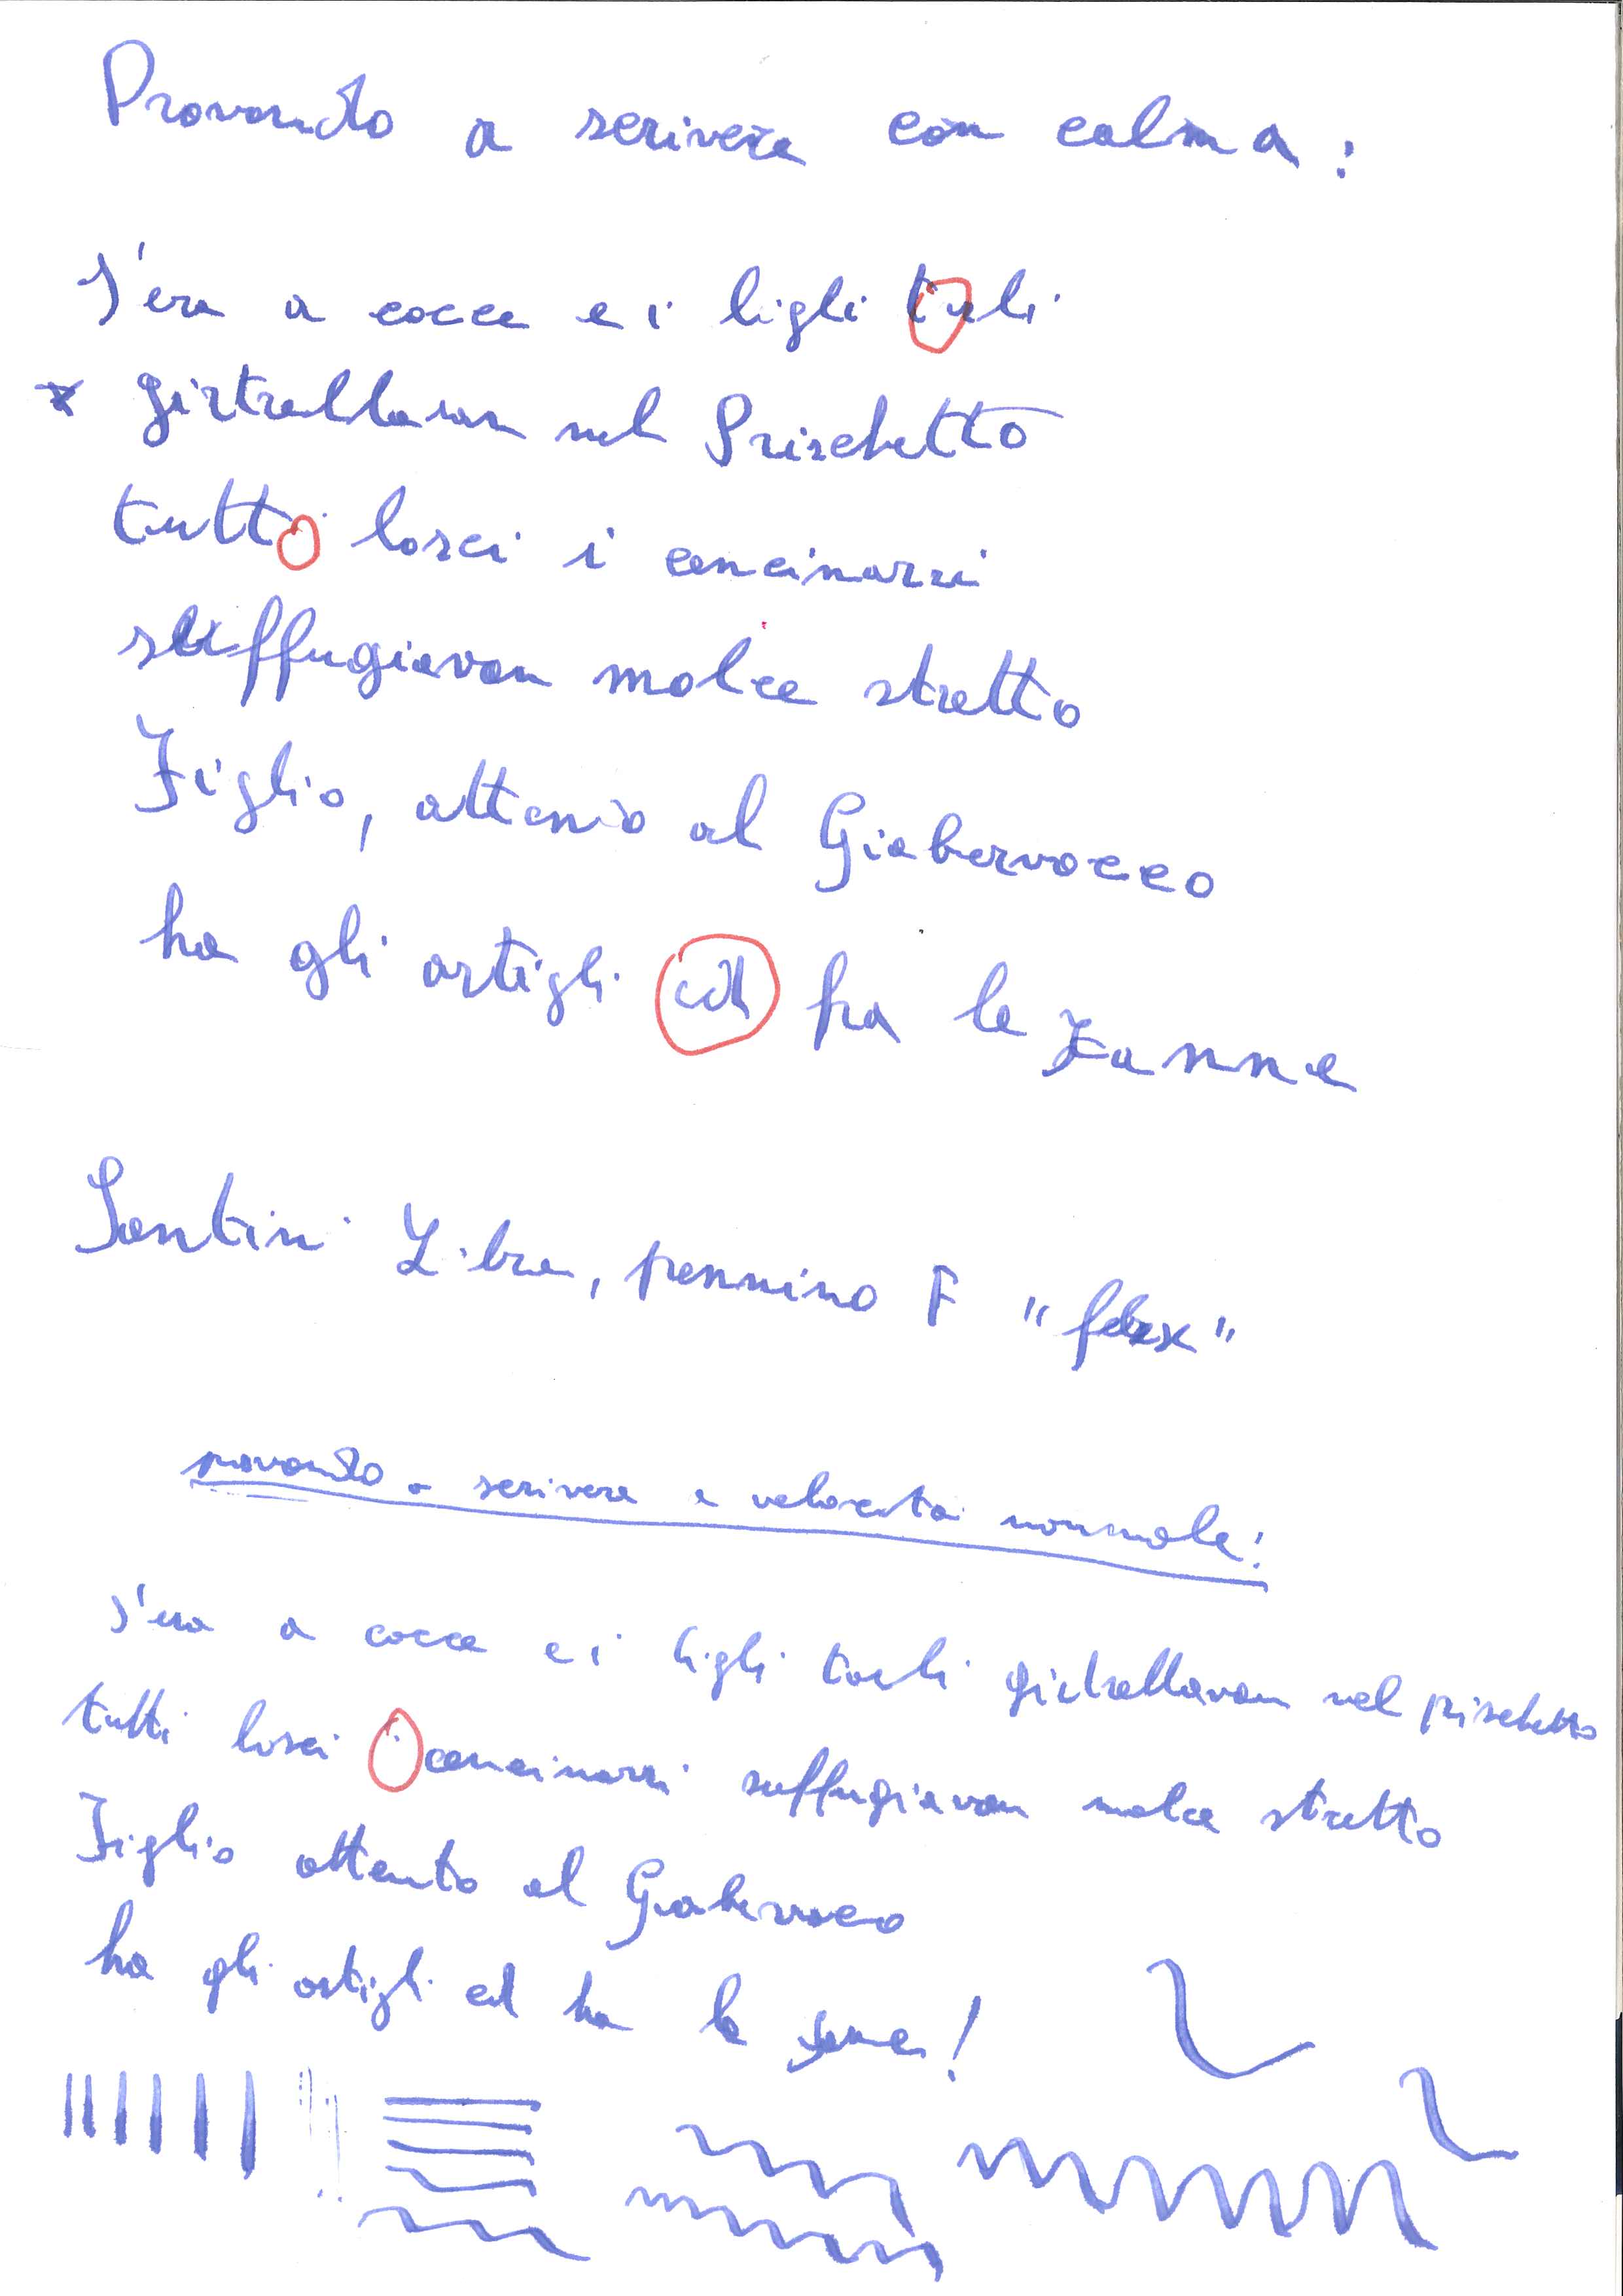 Provando a scrivere con calma:
S'era a cocce e i ligli tarli
girtrellavan nel Prischetto
tutti losci i cencinarri
suffugiavan molce stretto
Figlio, attento al Giabervocco
ha gli artigli ed ha le zanne
Santini Libra, pennino F "flex"
provando a scrivere a velocità normale:
s'era a cocce e i ligli tarli girtrellavan nel pirschetto
tutti losci i cencinarri suffugiavan molce stretto
Figlio attento al Giabervocco
ha gli artigli ed ha le zanne!